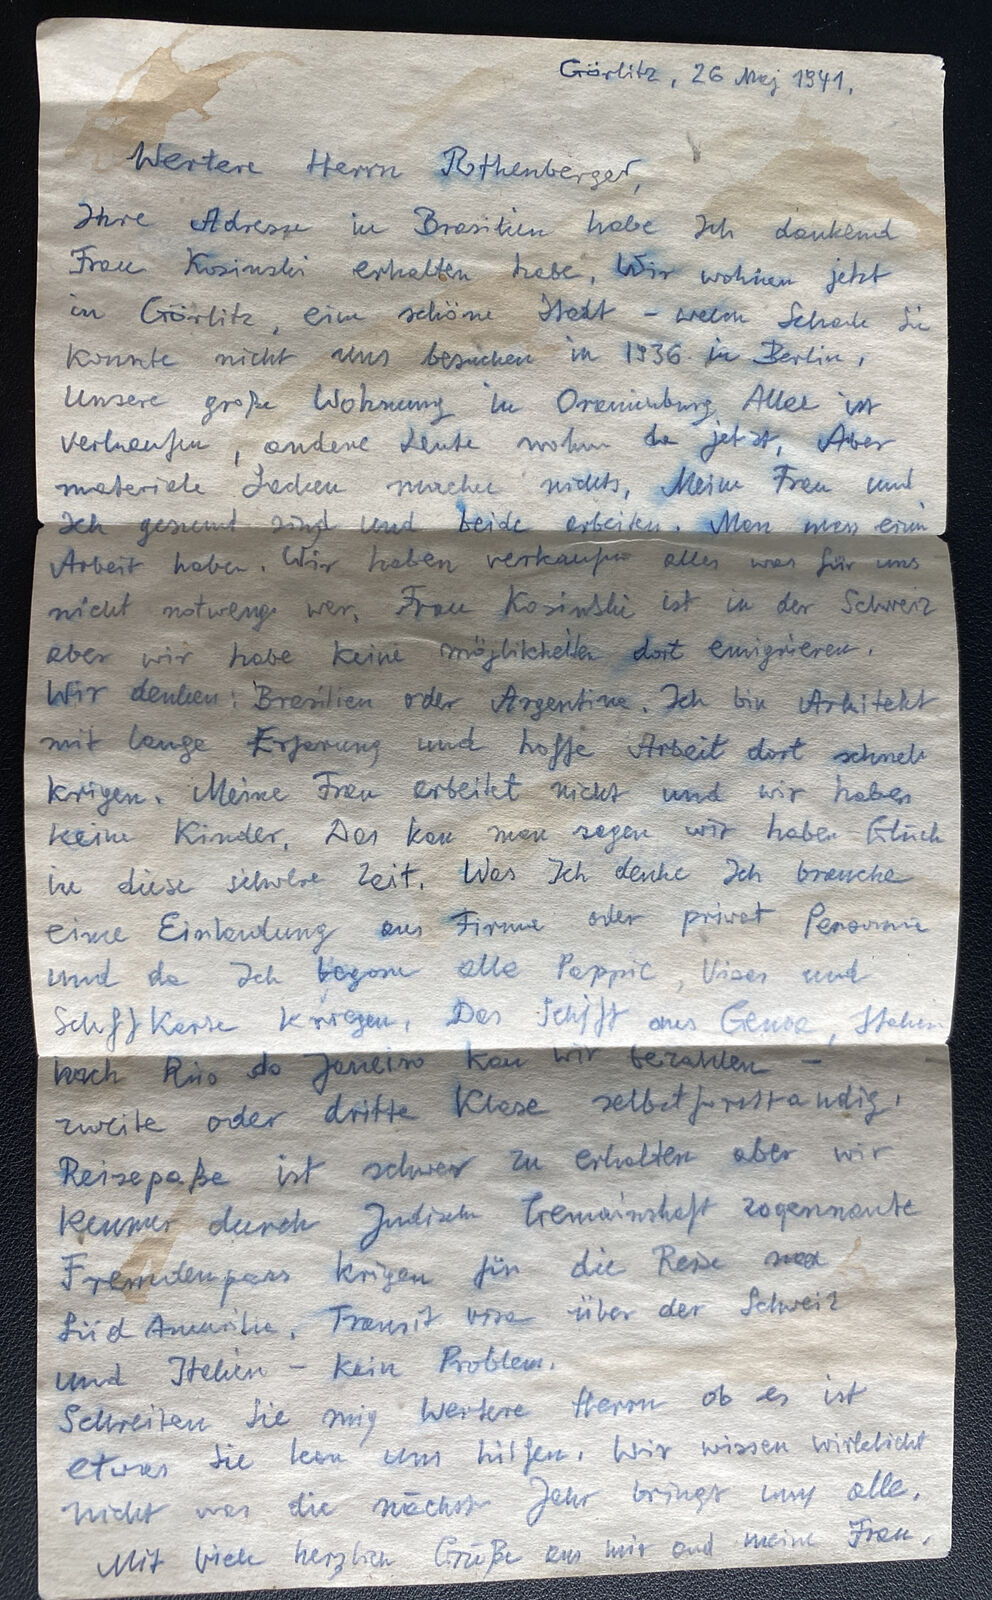 Görlitz, 26 Maj 1941.
Wertere Herrn Rothenberger,
Ihre Adresse in Brasilien habe Ich dankend
Frau Kosinski erhalten habe. Wir wohnen jetzt
in Görlitz, eine schöne Stadt - welch Schade Sie
konnte nicht uns besuchen in 1936 in Berlin.
Unsere große Wohnung in Oranienburg Allee ist
verkaufen, andere Leute wohn da jetzt, Aber
materiele Sachen machen nichts, Meine Frau und
Ich gesund sind und beide arbeiten. Man mus eine
Arbeit haben. Wir haben verkaufen alles was für uns
nicht notwenge wer. Frau Kosinski ist in der Schweiz
aber wir habe keine möglikheiten dort emigrieren.
Wir denken: Brasilien oder Argentina. Ich bin Arhitekt
mit lange Erfarung und hoffe Arbeit dort schnell
krigen. Meine Frau arbeitet nicht und wir haben
keine Kinder. Das kan man sagen wir haben Glück
in diese schwere Zeit. Was Ich denke Ich brauche
eine Einladung aus Firma oder privat
und da Ich alle Pappie, Visas und
Schiff Karte kriegen. Das Schiff aus Genoa, Italien
nach Rio do Janeiro kan wir bezahlen -
zweite oder dritte Klase selbstferstandig.
Reisepaße ist schwer zu erhalten aber wir
Kennen durch Judische Gemainshaft zogennante
Fremdenpass krigen für die Reise nax
Süd Amerika. Transit visa über der Schweiz
und Italien - kein Problem.
Schreiben Sie mig Wertere Herrn ob es ist
etwas Sie kan uns hilfen. Wir wissen wirklicht
nicht was die nächste Jahr bringt uns alle.
Mit viele herzlich Grüße aus mir und meine Frau.